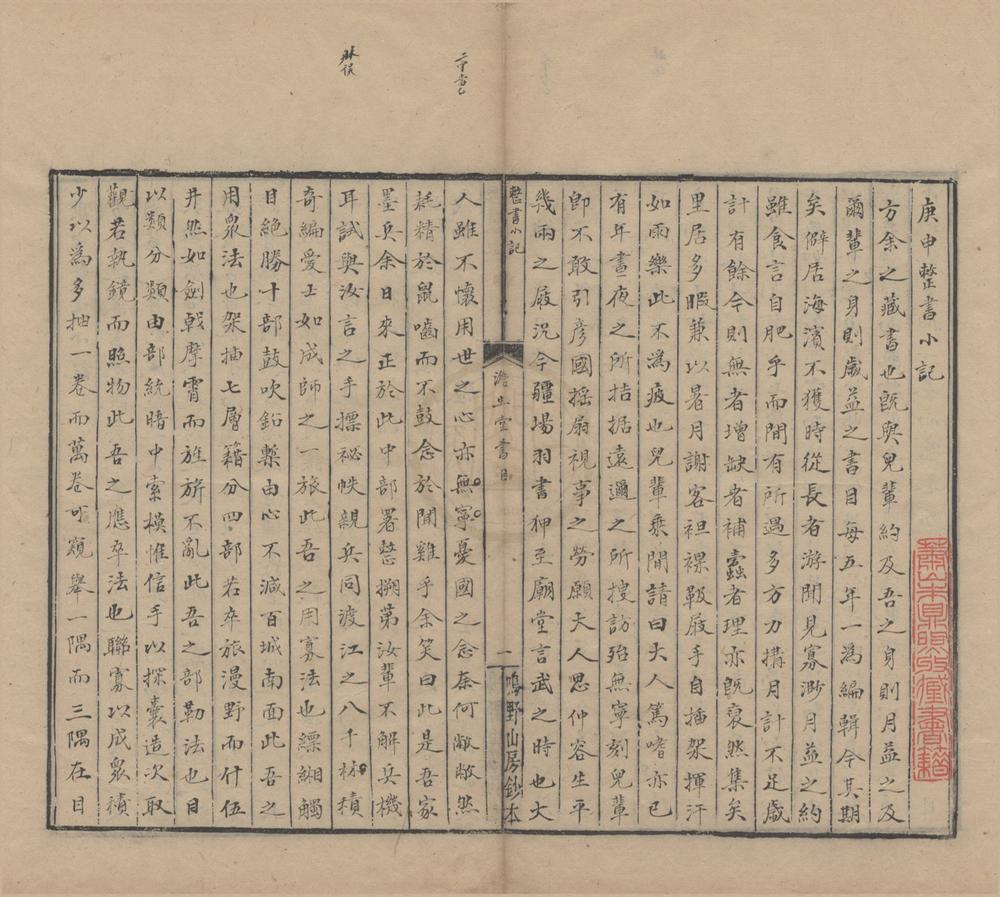 庚申整書小記
方余之藏書也旣與兒輩約及吾之身則月益之及
爾輩之身則歲益之書目每五年一爲編輯今其期
矣僻居海濱不獲時從長者游聞見寡渺月益之約
雖食言自肥乎而間有所遇多方力搆月計不足歲
計有餘今則無者增缺者補蠹者理亦旣裒然集矣
里居多暇兼以暑月謝客袒裸靸屐手自插架揮汗
如雨樂此不爲疲也兒輩乘間請曰大人篤嗜亦已
有年晝夜之所拮据遠邇之所搜訪殆無寧刻兒輩
卽不敢引彦國摇扇視事之勞願大人思仲容生平
幾兩之屐況今疆場羽書狎至廟堂言武之時也大
整書小記
澹生堂書目
一
鳴野山房鈔本
人雖不懷用世之心亦無寧憂國之念奈何敝敝然
耗精於鼠嚙而不鼓念於聞雞乎余笑曰此是吾家
墨兵余日來正於此中部署整搠第汝輩不解兵機
耳試與汝言之手摽祕帙親兵同渡江之八千牀積
奇編愛士如成師之一旅此吾之用寡法也縹緗觸
目絶勝十部鼓吹鉛槧由心不減百城南面此吾之
用衆法也架抽七層籍分四部若卒旅漫野而什伍
井然如劍戟摩霄而旌旂不亂此吾之部勒法也目
以類分類由部統暗中索模惟信手以探囊造次取
觀若執鏡而照物此吾之應卒法也聯寡以成衆積
少以爲多抽一卷而萬卷可窺舉一隅而三隅在目